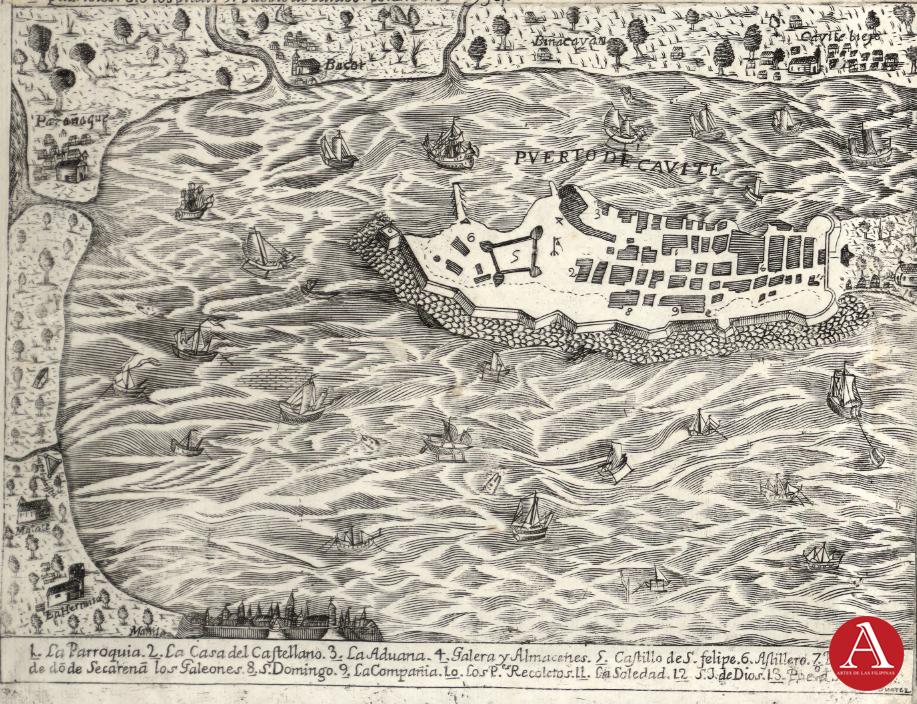 Bacor
Binacayan
Cavite biejo
Parañaque
PVERTO DE CAVITE
3
6
5
2
8
9
Malate
La Hermita
Manila
1. La Parroquia. 2. La Casa del Castellano. 3. La Aduana. 4. Galera y Almacenes. 5. Castillo de S. felipe. 6. Astillero. 7.
de dõde Secarenã los Galeones. 8. S. Domingo. 9. La Compañia. 10. Los P.es Recoletos. 11. La Soledad. 12 S. J. de Dios. 13.
A
ARTES DE LAS FILIPINAS